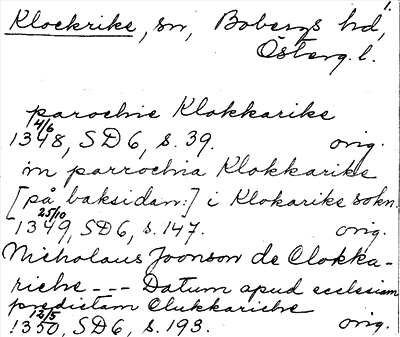 1.
Klockrike, sn, Bobergs hd,
Österg. l.
parochie Klokkarike
1348 4/6, SD 6, s. 39. orig.
in parrochia Klokkarike
[på baksidan:] i Klokarike sokn.
1349 25/10, SD 6, s. 147. orig.
Nicholaus Joonson de Clokka-
riche --- Datum apud ecclesiam
predictam Clukkariche
1350 12/5, SD 6, s. 193. orig.